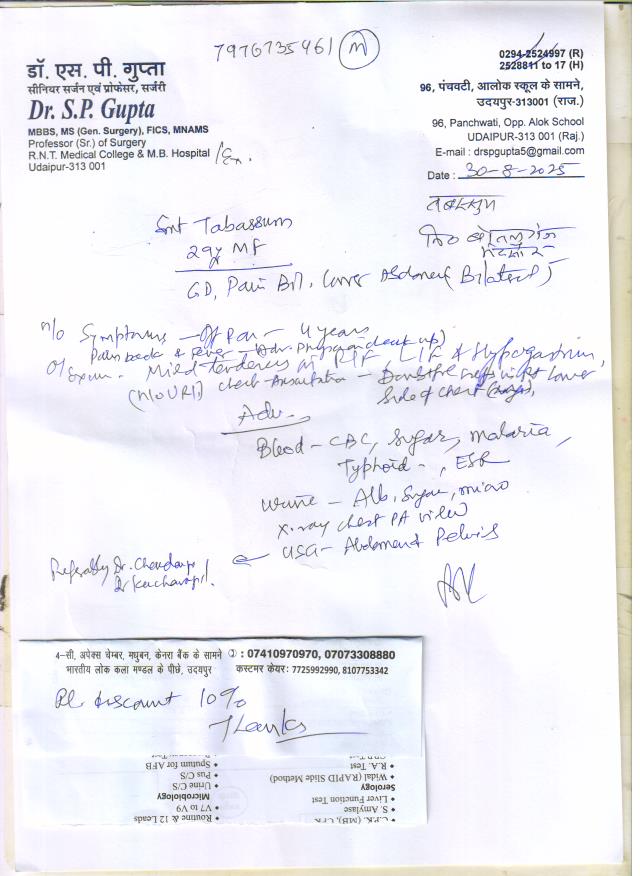 7976735461 M
डॉ. एस. पी. गुप्ता
सीनियर सर्जन एवं प्रोफेसर, सर्जरी
Dr. S.P. Gupta
MBBS, MS (Gen. Surgery), FICS, MNAMS
Professor (Sr.) of Surgery
R.N.T. Medical College & M.B. Hospital /Ex.
Udaipur-313 001
0294-2524997 (R)
2528811 to 17 (H)
96, पंचवटी, आलोक स्कूल के सामने,
उदयपुर-313001 (राज.)
96, Panchwati, Opp. Alok School
UDAIPUR-313 001 (Raj.)
E-mail : drspgupta5@gmail.com
Date : 30-8-2025
तबस्सुम
Smt Tabassum
29y MF
GD, Pain Bil. Lower Abdomen (Bilateral)
H/o Symptoms - Off Pain - 4 years
Pain back & Fever - Adv. Physician check up)
O/Exam - Mild tenderness in RIF, LIF & Hypogastrium,
(H/o URI) Chest Auscultation - Doubtful lower
side of chest
Adv.
Blood - CBC, Sugar, Malaria,
Typhoid - , ESR
Urine - Alb, Sugar, micro
X-ray chest PA view
USG - Abdomen & Pelvis
Preferably Dr.
Dr
4-सी, अपेक्स चेम्बर, मधुबन, केनरा बैंक के सामने : 07410970970, 07073308880
भारतीय लोक कला मण्डल के पीछे, उदयपुर कस्टमर केयर: 7725992990, 8107753342
Pl. discount 10%
Thanks
• Routine & 12 Leads
• V7 to V9
Microbiology
• Urine C/S
• Pus C/S
• Sputum for AFB
• C.P.K. (MB), CPK
• S. Amylase
• Liver Function Test
Serology
• Widal (RAPID Slide Method)
• R.A. Test